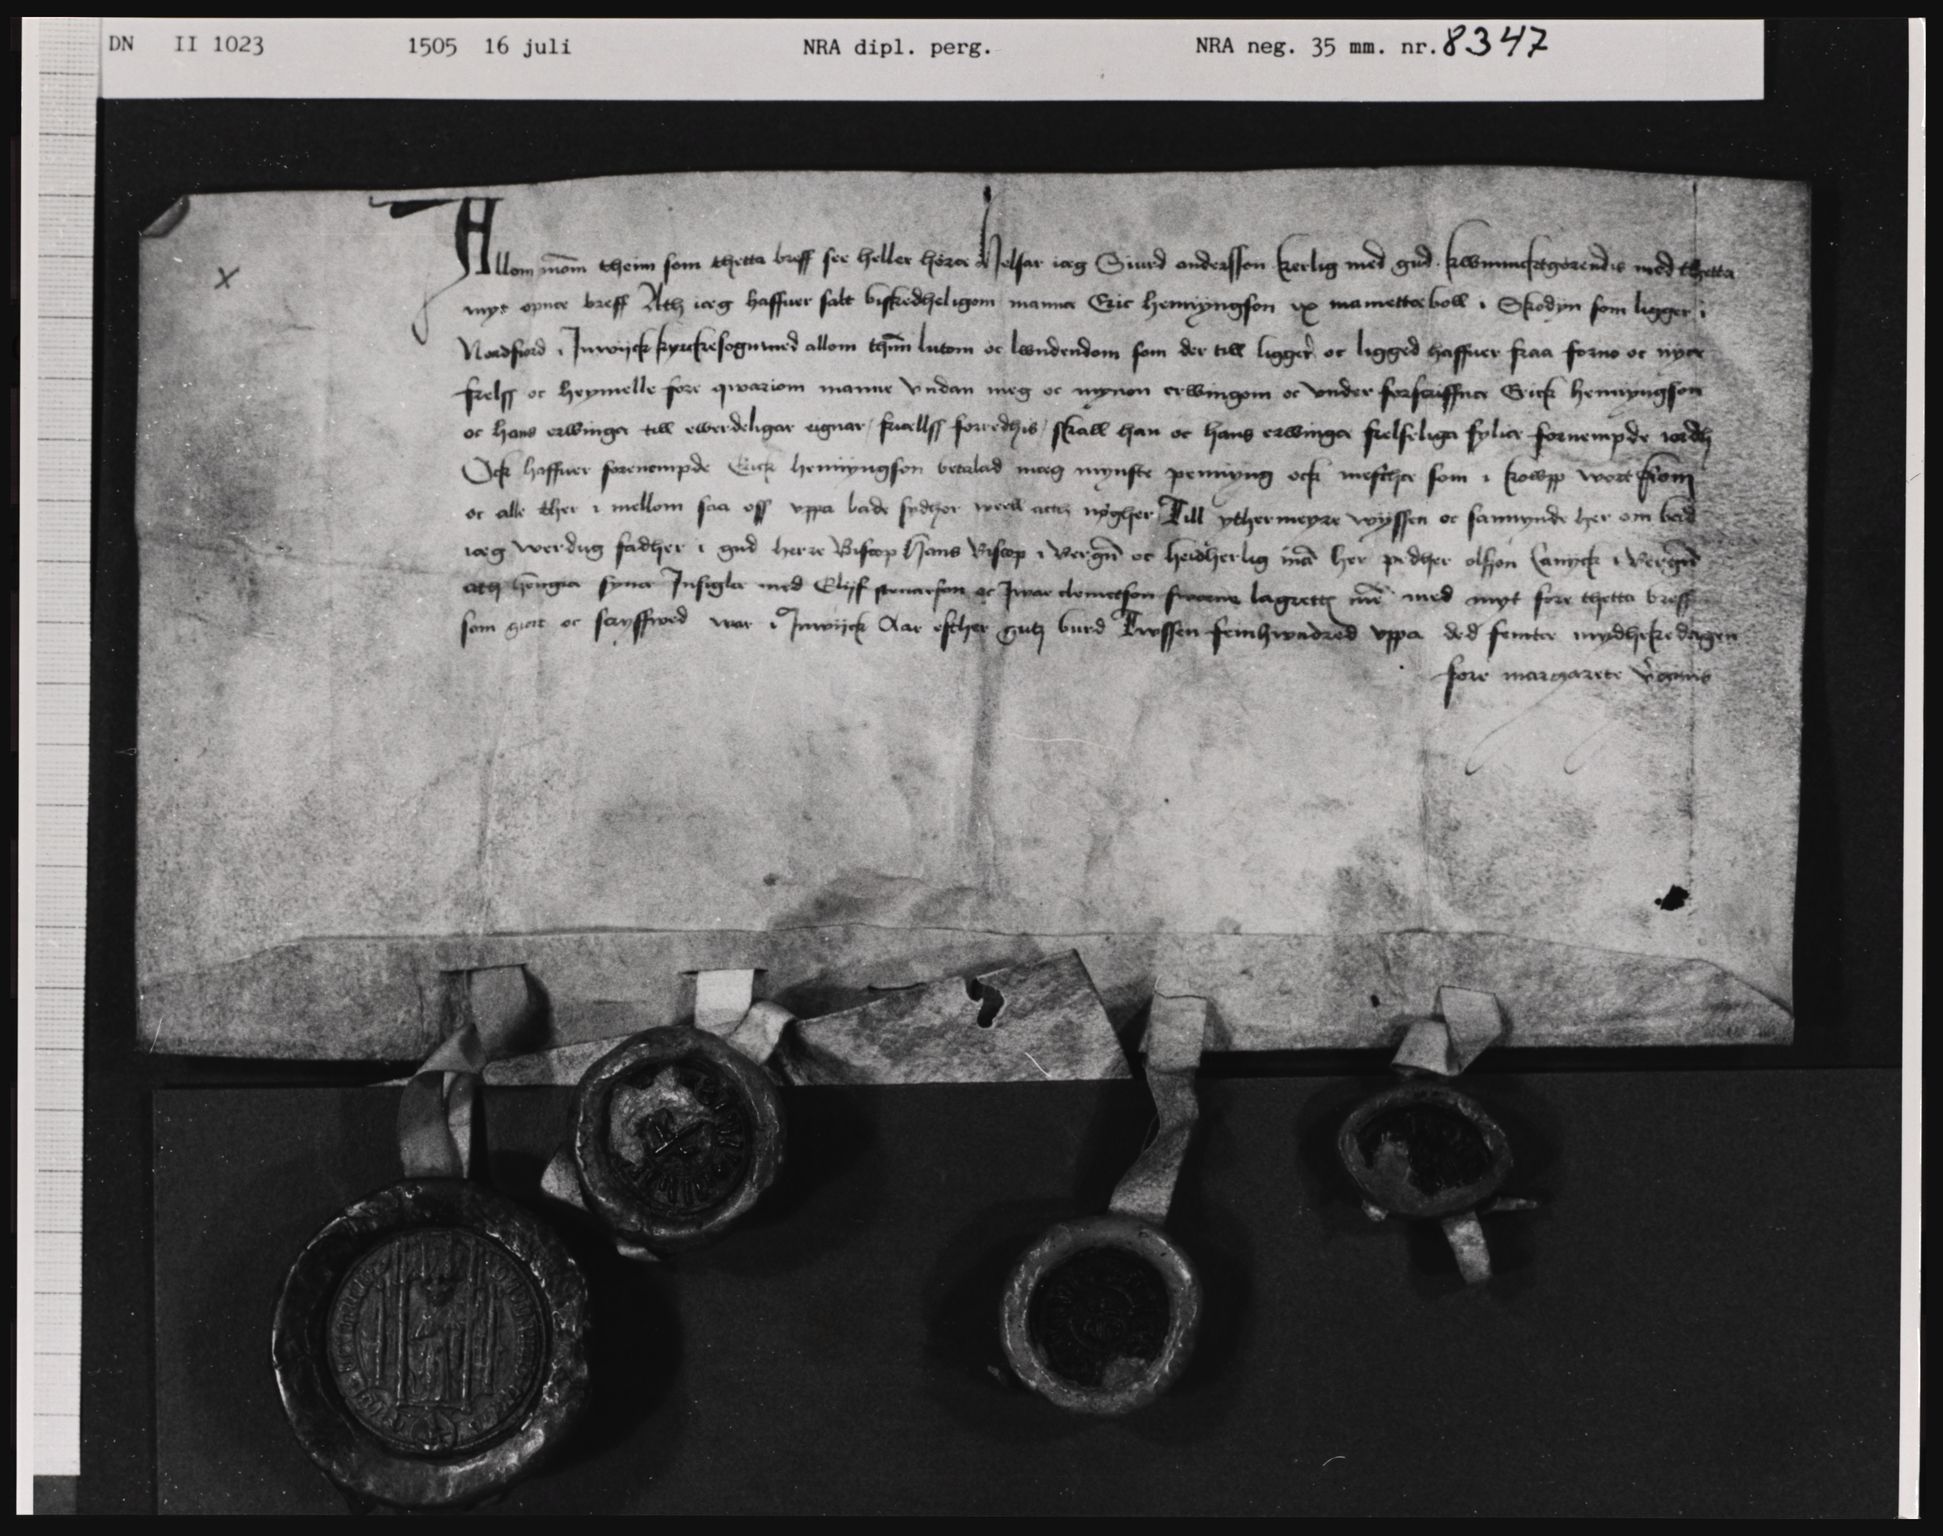 DN II 1023 1505 16 juli NRA dipl. perg. NRA neg. 35 mm. nr. 8347
x
Allom mom theim som thetta breff see heller höræ helsar iæg Siurd andersson kerlig med gud kwnnuckttgörendis med thetta
myt opnæ breff Ath iæg haffuer salt biskedheligom mannæ Eric hennyngson ix mamettæboll i Skodyn som ligger i
Nordfiord i Jnwijck kyrckesogn med allom thm lutom oc lwndendom som der till ligger oc ligged haffuer fraa forno oc nyæ
frelss oc heymelle fore qwariom manne vndan meg oc mynom erwingom oc vnder forscriffnæ Erick hennyngson
oc hans erwinga till ewerdeligar eignar / friællss forredhis / skall han oc hans erwinga frelseliga fylia fornempde iordh
Ock haffuer forenempde Erick hennyngson betalad mæg mynste pennyng ock mesthæ som i kowpp wort kom
oc alle ther i mellom saa oss vppa bade sydhor well atth nøgher Till ythermeyre wyssen oc sannynde her om bed
iæg werdug fadher i gud herre Biscop Hans Biscop i Bergn oc heidherlig man her pædher olson Canyck i Bergen
ath hengia synæ Jnsigle med Elijf son oc Jwar clemetson sworne lagrettis men med myt fore thetta breff
som giort oc scryffwed war i Jnwijck Aar efther gutz burd Twssen femhwndred vppa ded femtæ mydhekedagen
fore margarete virginis